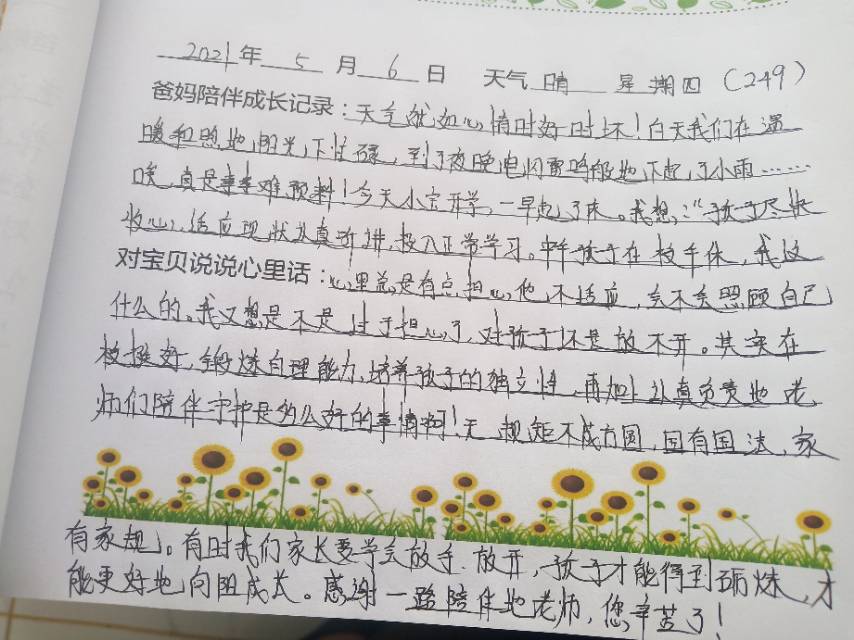 2021年 5 月 6 日 天气 晴 星期四（249）
爸妈陪伴成长记录：天气就如心情时好时坏！白天我们在温
暖和煦地阳光下忙碌，到了夜晚电闪雷鸣般地下起了小雨……
唉，真是事事难预料！今天小宝开学，一早起了床。我想：“孩子尽快
收心，适应现状认真听讲，投入正常学习。中午孩子在校午休，我这
对宝贝说说心里话：心里总是有点担心，他不适应，会不会照顾自己
什么的。我又想是不是过于担心了，对孩子还是放不开。其实在
校挺好，锻炼自理能力、培养孩子的独立性，再加上认真负责地老
师们陪伴守护是多么好的事情啊！无规矩不成方圆，国有国法，家
有家规。有时我们家长要学会放手、放开，孩子才能得到砺炼，才
能更好地向阳成长。感谢一路陪伴地老师，您辛苦了！